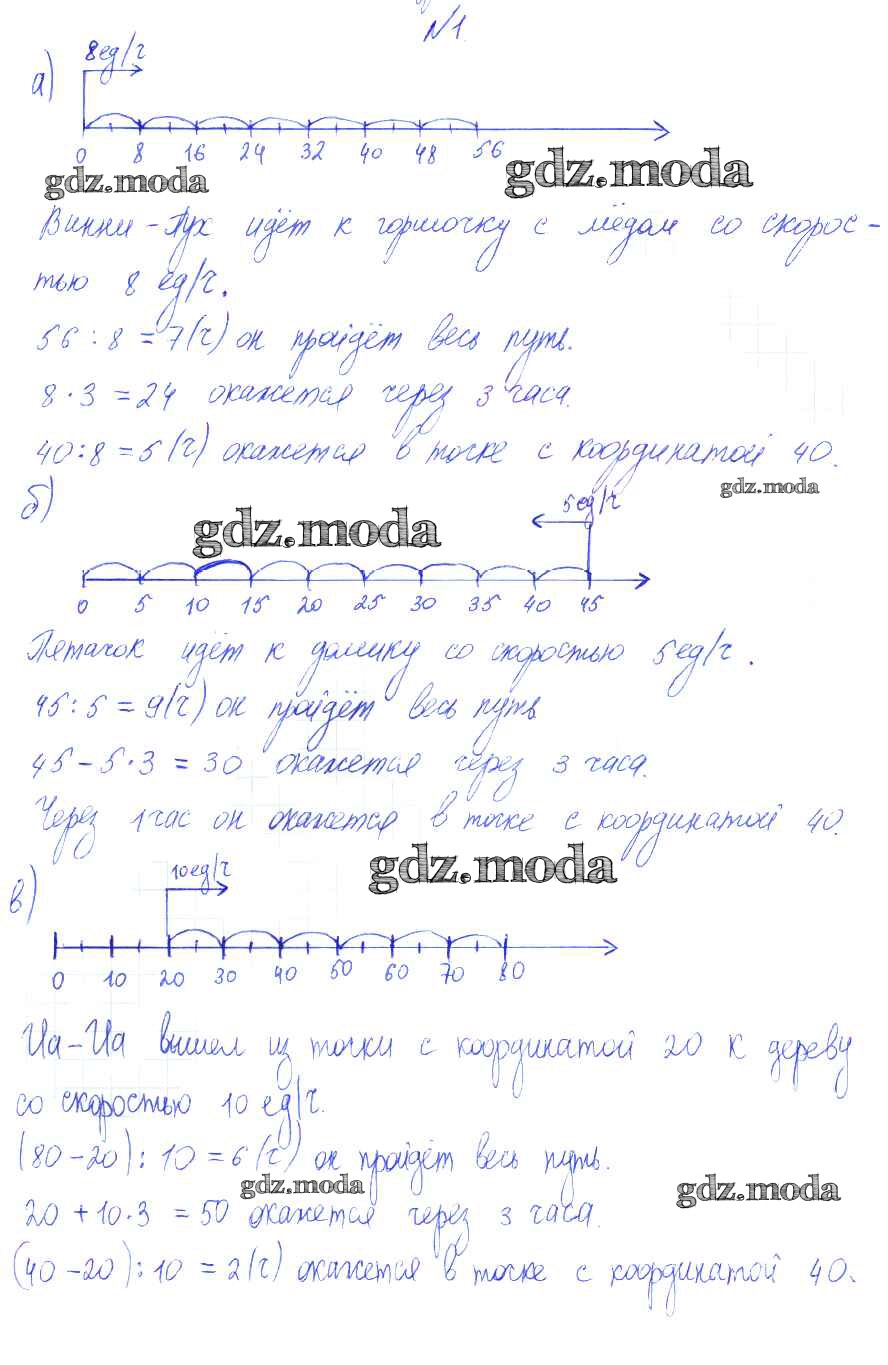 №1.
а) 8ед/ч
0 8 16 24 32 40 48 56
gdz.moda gdz.moda
Винни-Пух идёт к горшочку с мёдом со скорос-
тью 8 ед/ч.
56 : 8 = 7(ч) он пройдёт весь путь.
8 · 3 = 24 окажется через 3 часа.
40:8 = 5 (ч) окажется в точке с координатой 40.
gdz.moda
б) 5ед/ч
gdz.moda
0 5 10 15 20 25 30 35 40 45
Пятачок идёт к домику со скоростью 5ед/ч.
45:5 = 9(ч) он пройдёт весь путь
45 - 5·3 = 30 окажется через 3 часа.
Через 1 час он окажется в точке с координатой 40.
gdz.moda
в) 10ед/ч
0 10 20 30 40 50 60 70 80
Иа-Иа вышел из точки с координатой 20 к дереву
со скоростью 10 ед/ч.
(80-20): 10 = 6 (ч) он пройдёт весь путь.
gdz.moda gdz.moda
20 + 10·3 = 50 окажется через 3 часа.
(40-20):10 = 2(ч) окажется в точке с координатой 40.